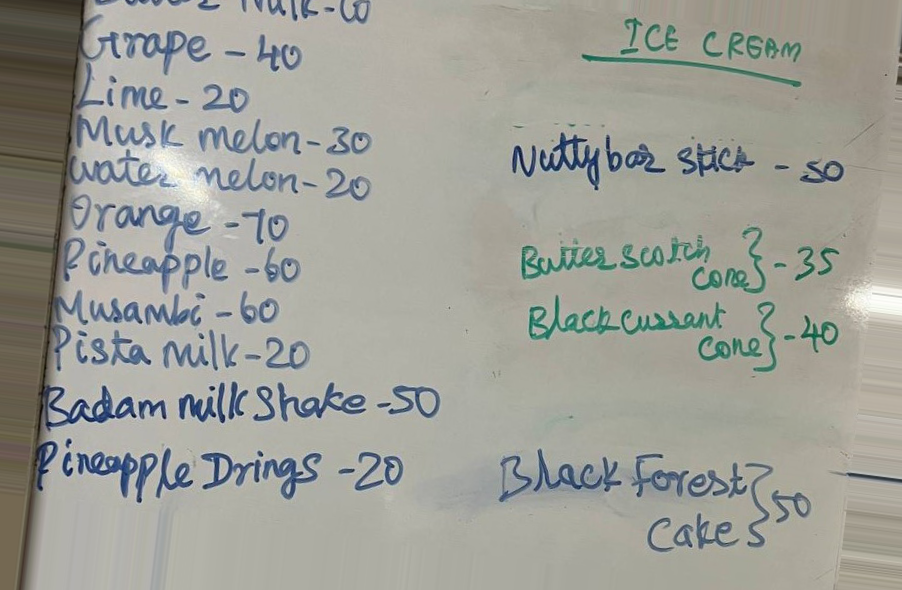 Milk-60
Grape - 40
Lime - 20
Musk melon-30
water melon-20
Orange -70
Pineapple -60
Musambi -60
Pista milk-20
Badam milk Shake -50
Pineapple Drings -20
ICE CREAM
Nuttybar stick - 50
Butterscotch
cone} - 35
Blackcurrant
cone} - 40
Black Forest
Cake} 50